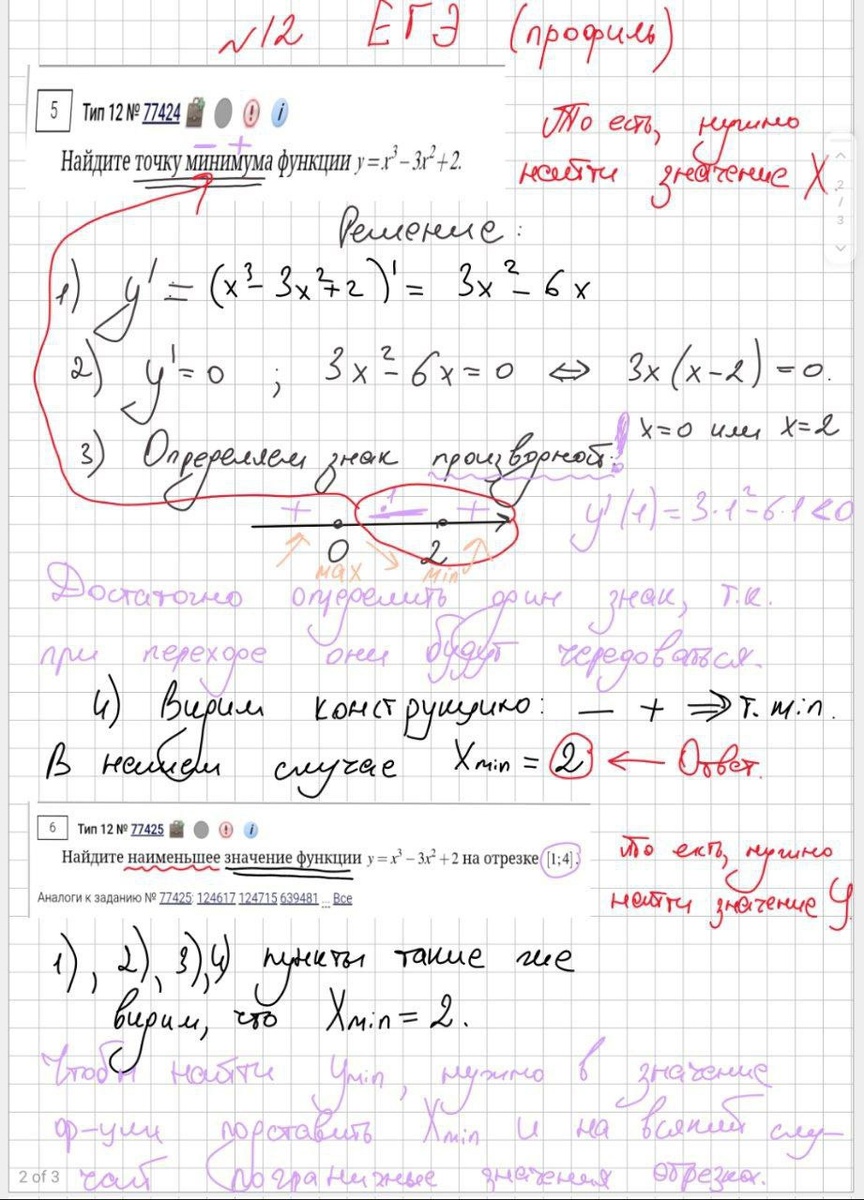 №12 ЕГЭ (профиль)
5 Тип 12 № 77424
− +
Найдите точку минимума функции y = x³ − 3x² + 2.
То есть, нужно
найти значение X
Решение:
1) y' = (x³ − 3x² + 2)' = 3x² − 6x
2) y' = 0 ; 3x² − 6x = 0 ⇔ 3x(x − 2) = 0.
x = 0 или x = 2
3) Определяем знак производной:
+ 1 − +
0 2
max min
y'(1) = 3·1² − 6·1 < 0
Достаточно определить один знак, т.к.
при переходе они будут чередоваться.
4) Видим конструкцию: − + ⇒ т. min.
В нашем случае Xmin = 2 ← Ответ.
6 Тип 12 № 77425
Найдите наименьшее значение функции y = x³ − 3x² + 2 на отрезке [1;4].
Аналоги к заданию № 77425: 124617 124715 639481 ... Все
то есть, нужно
найти значение y
1), 2), 3), 4) пункты такие же
видим, что Xmin = 2.
Чтобы найти ymin, нужно в значение
ф-ули подставить Xmin и на всякий слу-
чай пограничные значения отрезка.
2 / 3
2 of 3